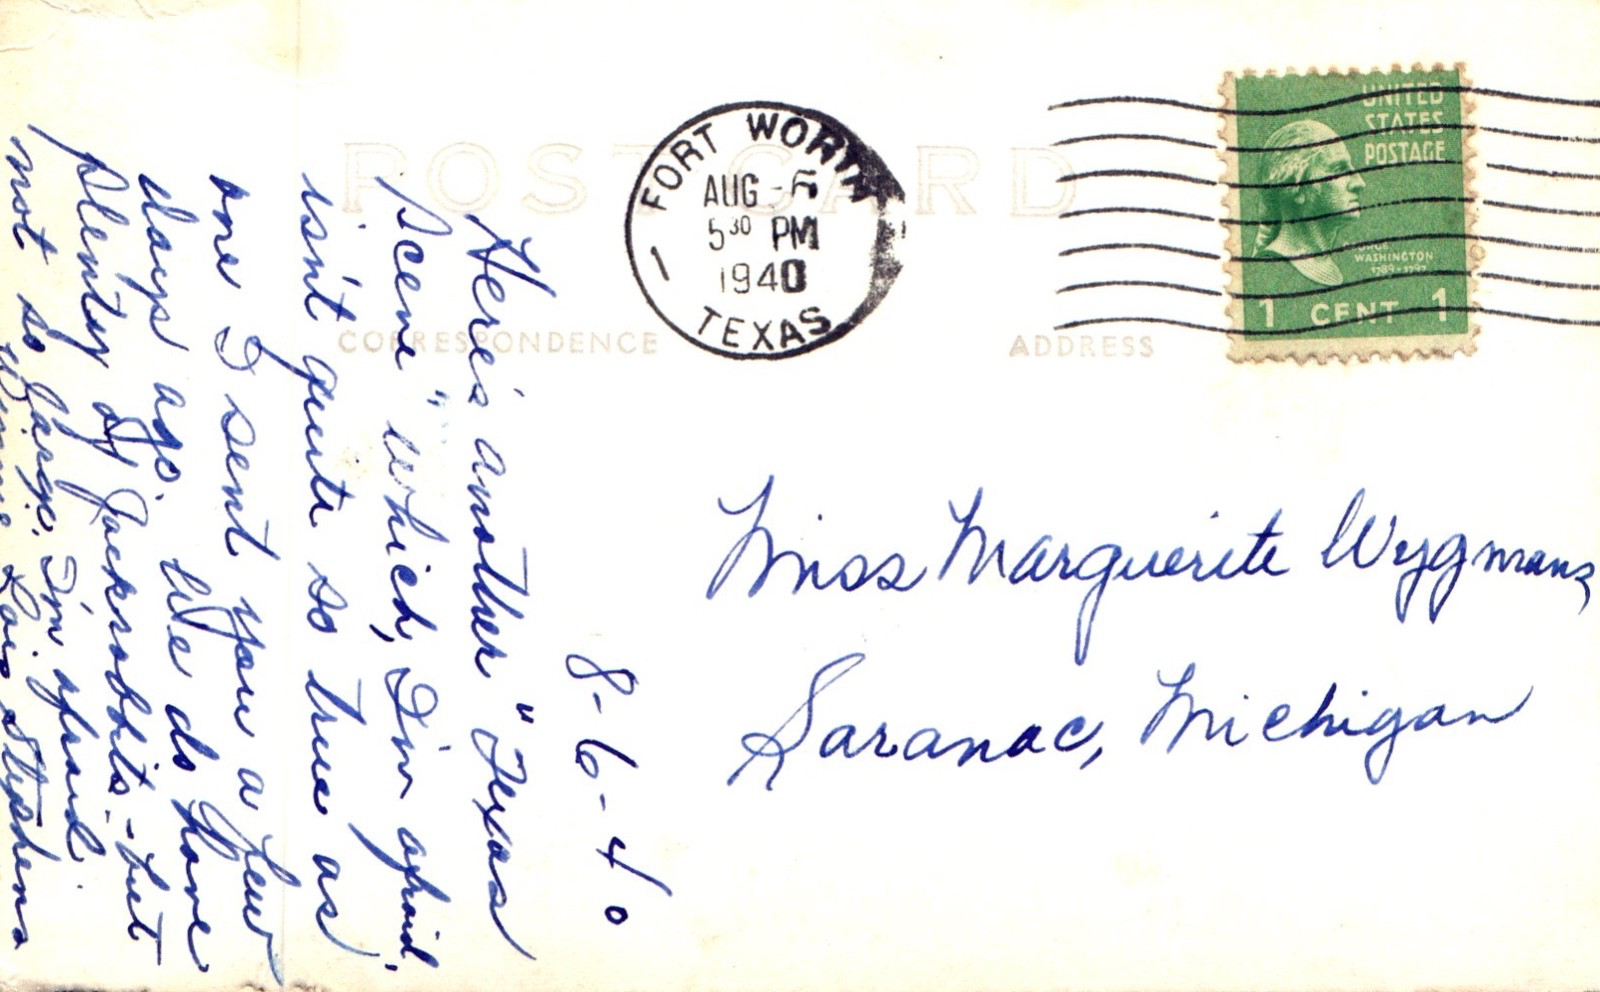 POST CARD
CORRESPONDENCE
ADDRESS
FORT WORTH
AUG - 6
5 30 PM
1940
1
TEXAS
UNITED
STATES
POSTAGE
GEORGE
WASHINGTON
1789-1797
1 CENT 1
8-6-40
Here's another "Texas
scene" which, I'm afraid,
isn't quite so true as
one I sent you a few
days ago. We do have
plenty of Jackrabbits - but
not so large, I'm afraid.
Lois Stephens
Miss Marguerite Wygmans,
Saranac, Michigan